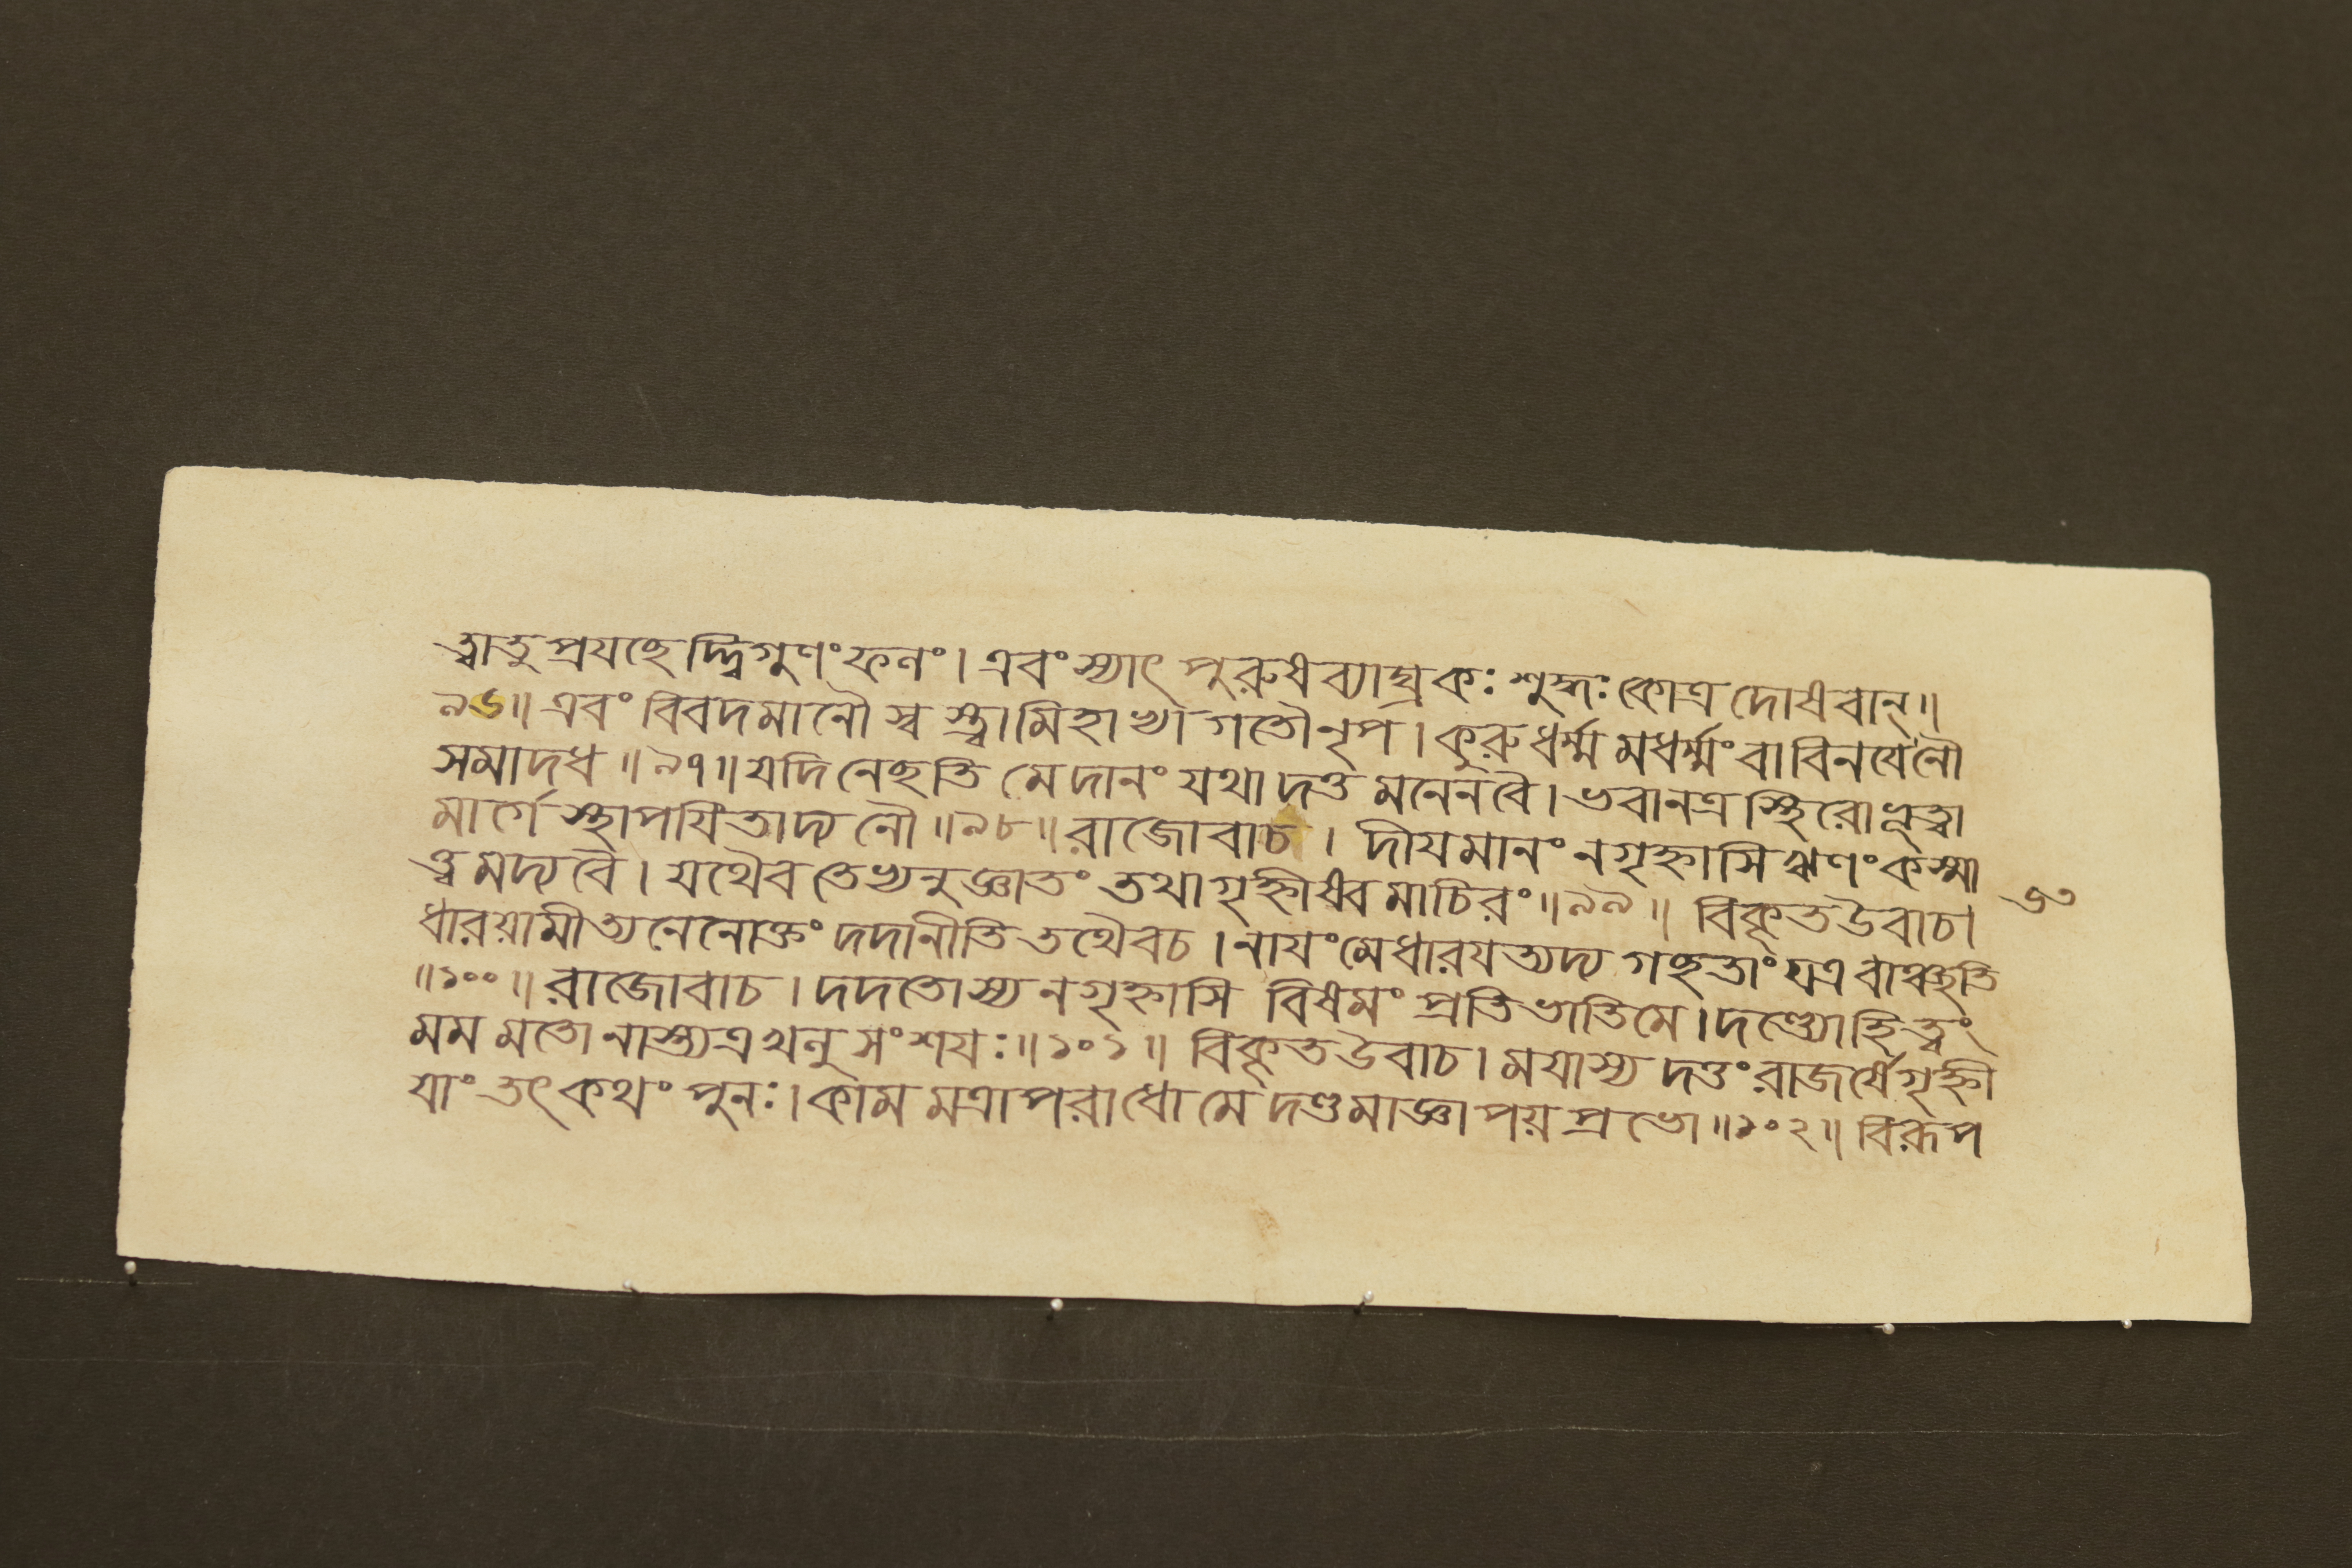 ত্ত্বা তু প্রযচ্ছেদ্দ্বিগুণং ফলং । এবং স্যাৎ পুরুষব্যাঘ্র কঃ শুদ্ধঃ কোত্র দোষবান্ ॥
৯৬ ॥ এবং বিবদমানৌ স্ব স্ত্বামিহাভ্যাগতৌ নৃপ । কুরু ধর্ম্মমধর্ম্মং বা বিনযে নৌ
সমাদধ ॥ ৯৭ ॥ যদি নেচ্ছতি মে দানং যথা দত্তমনেন বৈ । ভবানত্র স্থিরো ভূত্বা
মার্গে স্থাপযিতাদ্য নৌ ॥ ৯৮ ॥ রাজোবাচ । দীযমানং ন গৃহ্নাসি ঋণং কস্মা
ত্ত্বমদ্য বৈ । যথৈব তেভ্যনুজ্ঞাতং তথা গৃহ্নীষ্ব মাচিরং ॥ ৯৯ ॥ বিকৃত উবাচ ।
ধারয়ামীত্যনেনোক্তং দদানীতি তথৈব চ । নাযং মে ধারযত্যদ্য গচ্ছতাং যত্র বাঞ্ছতি
॥ ১০০ ॥ রাজোবাচ । দদতোস্য ন গৃহ্নাসি বিষমং প্রতিভাতি মে । দণ্ড্যো হি ত্বং
মম মতো নাস্ত্যত্র খলু সংশযঃ ॥ ১০১ ॥ বিকৃত উবাচ । মযাস্য দত্তং রাজর্ষে গৃহ্নী
যাং তৎ কথং পুনঃ । কামমত্রাপরাধো মে দণ্ডমাজ্ঞাপয় প্রভো ॥ ১০২ ॥ বিরূপ